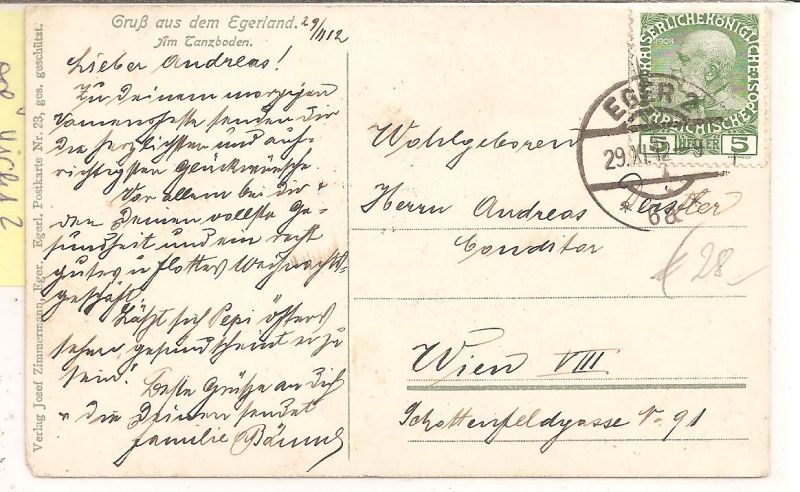 Gruß aus dem Egerland. 29/XI 12
Am Tanzboden.
Lieber Andreas!
Zu Deinem morgigen
Namensfeste senden dir
die herzlichsten und auf-
richtigsten Glückwünsche.
Vor allem bei dir &
den Deinen vollste Ge-
sundheit und ein recht
gutes u flottes Weihnachts-
geschäft.
Läßt sich Pepi öfters
sehen, gesund scheint er zu
sein!
Beste Grüsse an Dich
u die Deinen sendet
Familie
Verlag Josef Zimmermann, Eger. Egerl. Postkarte Nr. 23, ges. geschützt.
KAISERLICHE KÖNIGLICHE
1908
5 HELLER 5
EGER 2
29.XI.12
* 6a *
Wohlgeboren
Herrn Andreas
Conditor
Wien VIII
Schottenfeldgasse No. 91
€ 28-